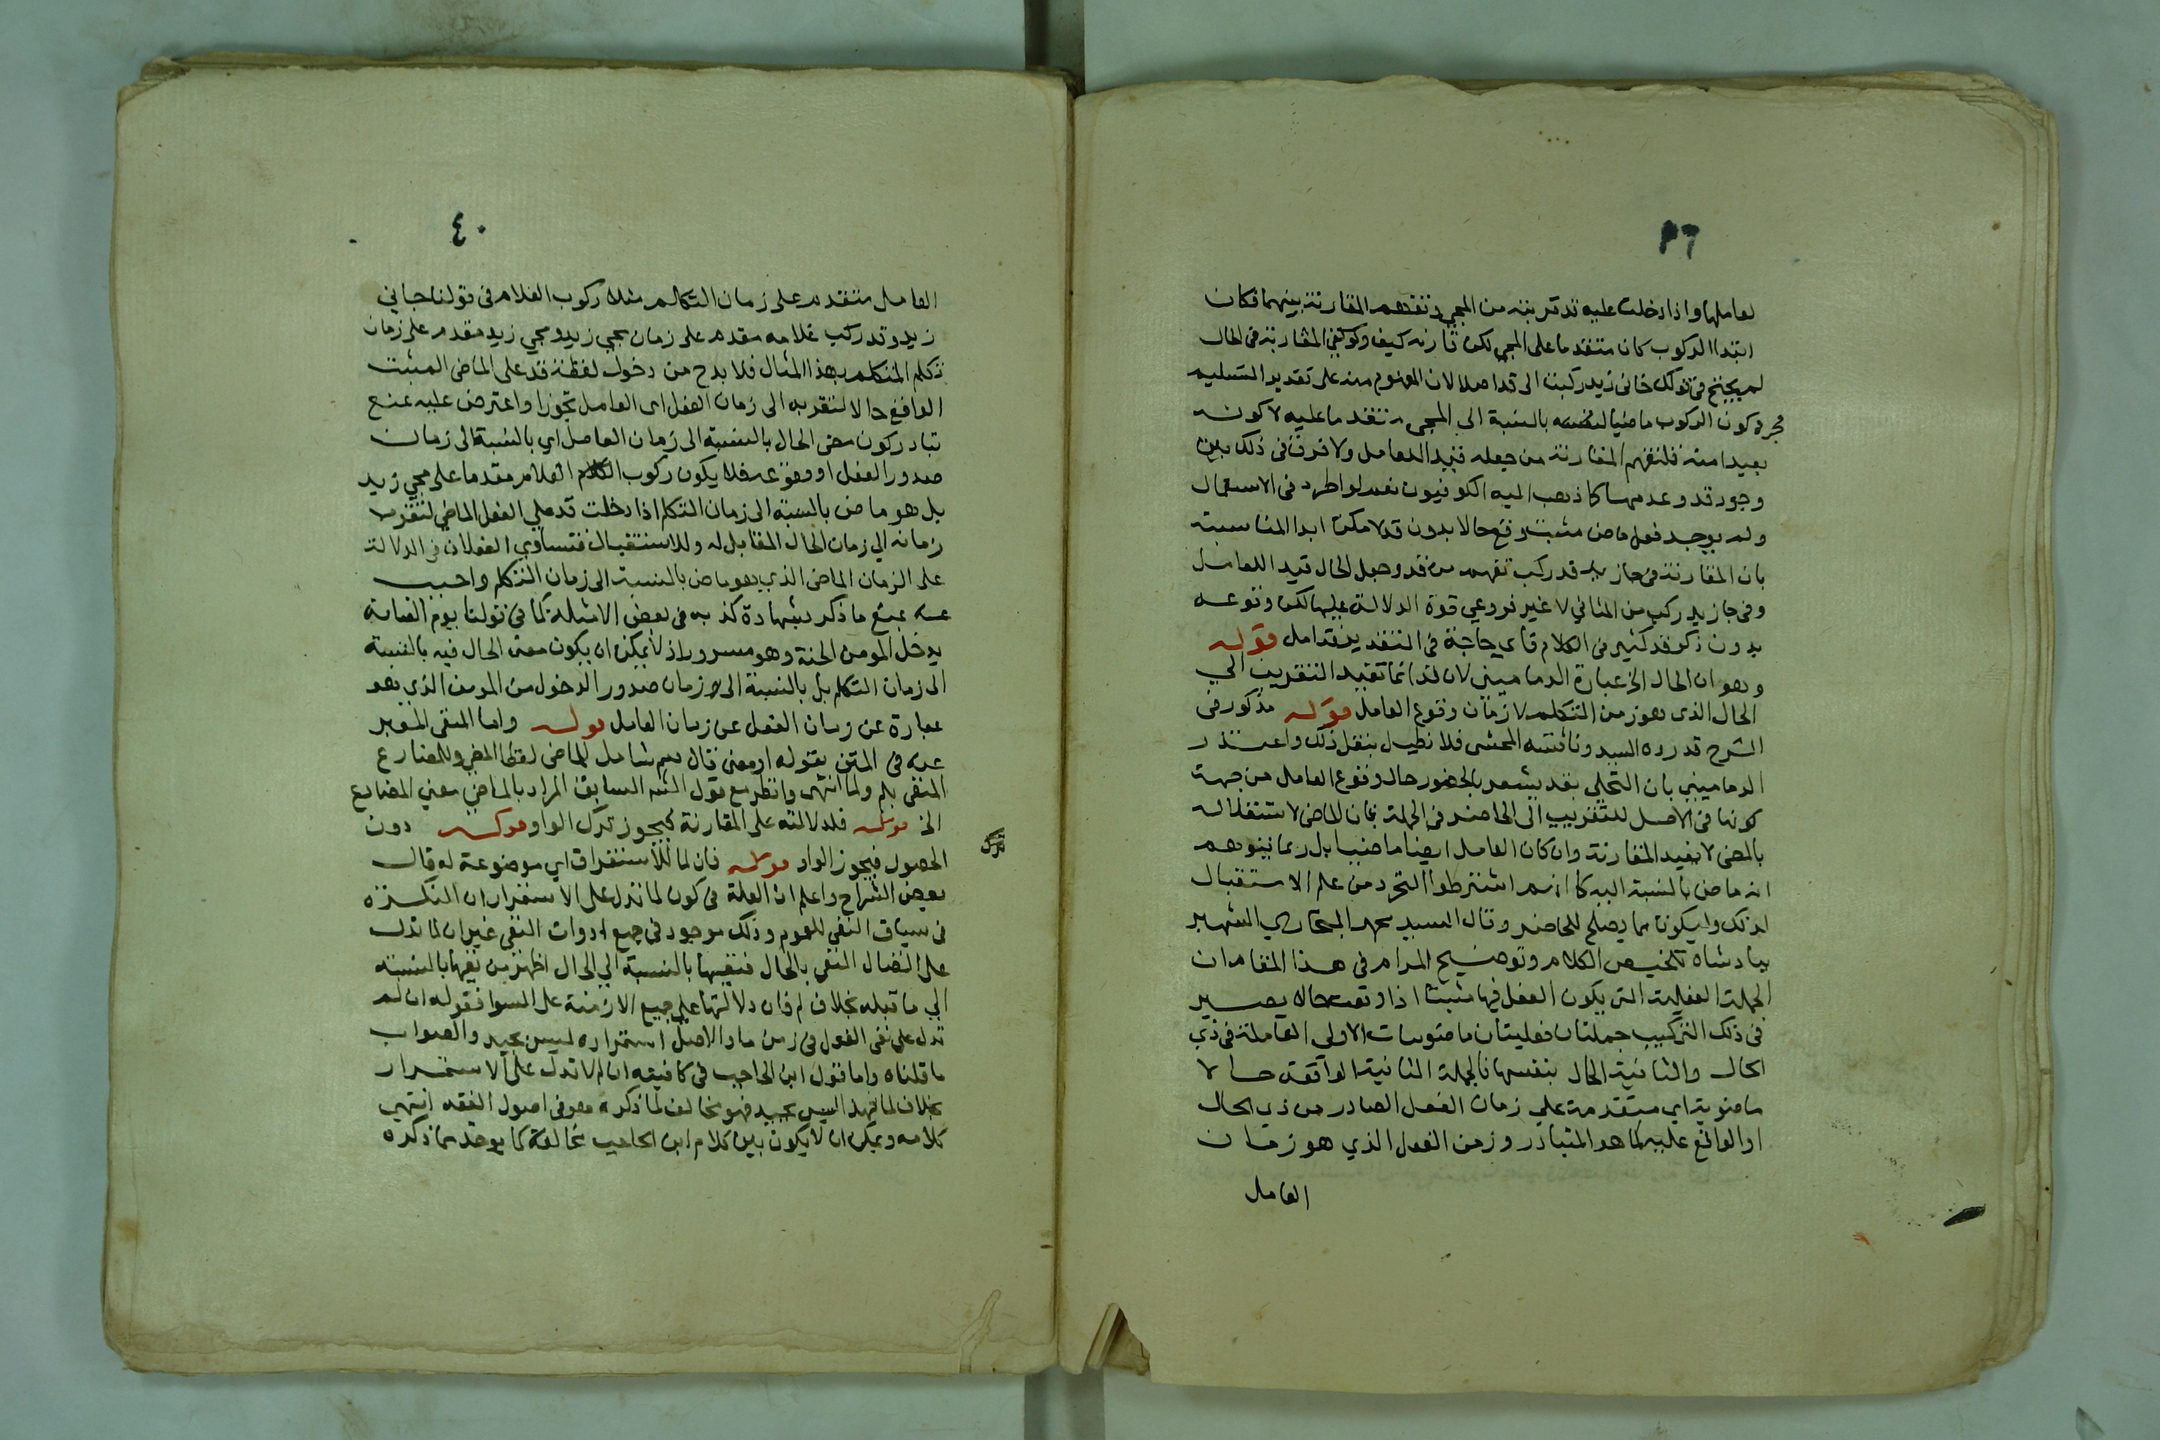 ٣٦
لعاملها واذا دخلت عليه قد قربته من المجي فتفهم المقارنة بينهما فكان
ابتدا الركوب كان متقدما على المجي لكن قارنه كيف ولولا المقارنة في الحال
لم يحتج في قولك جانى زيد ركب الى قد اصلا لان المفهوم منه على تقدير التسليم
مجرد كون الركوب ماضيا بالنسبة الى المجي متقدما عليه لا كونه
بعيدا منه فلتفهم المقارنة من جعله قيد العامل ولا فرق في ذلك بين
وجود قد وعدمها كما ذهب اليه الكوفيون نعم لو اطرد في الاستعمال
ولم يوجد فعل ماض مثبت وقع حالا بدون قد لا مكن ابدا المناسبة
بان المقارنة في جا زيد قد ركب تفهم من قد وجعل الحال قيد اللعامل
وفي جا زيد ركب من الثاني لا غير فروعي قوة الدلالة عليها لكن وقوعه
بدون ذكر قد كثير في الكلام فأي حاجة في التقدير فتدامل قوله
وهو ان الحال الخ عبارة الدماميني لان قد انما تفيد التقريب الي
الحال الذى هو زمن التكلم لا زمان وقوع العامل قوله مذكور في
الشرح قد رده السيد وناقشه المحشى فلا نطيل بنقل ذلك واعتذر
الدماميني بان التحلي بقد يشعر بالحضور حال وقوع العامل من جهة
كونها في الاصل للتقريب الى الحاضر في الجملة فان الماضى لاستقلاله
بالمضى لا يفيد المقارنة وان كان العامل ايضا ماضيا بل ربما يتوهم
انه ماض بالنسبة اليه كما انهم اشترطوا التجرد من علم الاستقبال
لذلك وليكونا مما يصلح للحاضر وقال السيد محمد البخاري الشهير
ببادشاه تلخيص الكلام وتوضيح المرام في هذا المقام ان
الجملة الفعلية التى يكون الفعل فيها مثبتا اذا وقعت حالا يصير
في ذلك التركيب جملتان فعليتان ماضويتان الاولى العاملة في ذي
الحال والثانية الحال بنفسها فالجملة الثانية الواقعة حالا
ماضوية اي متقدمة علي زمان الفعل الصادر من ذي الحال
او الواقع عليه كما هو المتبادر وزمن الفعل الذي هو زمان
العامل
٤٠
العامل متقدم على زمان التكلم مثلا ركوب الغلام في قولنا جاني
زيد وقد ركب غلامه مقدم على زمان مجي زيد ومجي زيد مقدم على زمان
تكلم المتكلم بهذا المثال فلا بدح من دخول لفظة قد على الماضى المثبت
الواقع حالا لتقربه الى زمان الفعل اى العامل تجوزا واعترض عليه بمنع
تبادر كون مضى الحال بالنسبة الى زمان العامل اي بالنسبة الى زمان
صدور الفعل او وقوعه فلا يكون ركوب الغلام مقدما على مجي زيد
بل هو ماض بالنسبة الى زمان التكلم اذا دخلت قد على الفعل الماضي لتقرب
زمانه الي زمان الحال المقابل له وللاستقبال فتساوي الفعلان في الدلالة
على الزمان الماضى الذي هو ماض بالنسبة الى زمان التكلم واجيب
عنه بمنع ما ذكر بشهادة كذبه في بعض الامثلة كما في قولنا يوم القيامة
يدخل المومن الجنة وهو مسرور اذ لا يمكن ان يكون معنى الحال فيه بالنسبة
الى زمان التكلم بل بالنسبة الى زمان صدور الدخول من المومن الذي هو
عبارة عن زمان الفعل عن زمان العامل قوله واما المنفى المعبر
عنه في المتن بقوله او معنى قال سم شامل للماضى لفظا المنفى وللمضارع
المنفى بلم ولما انتهى وانظر مع قول الشه السابق المراد بالماضي معني المضارع
الخ قوله فلدلالته على المقارنة فيجوز ترك الواو قوله دون
الحصول فيجوز الواو قوله فان لما للاستغراق اي موضوعة له قال
بعض الشراح واعلم ان العلة في كون لما تدل على الاستغراق ان النكرة
في سياق النفى للعموم وذلك موجود في جميع ادوات النفى غير ان لما تدل
على اتصال النفى بالحال فنفيها بالنسبة الي الحال اظهر من نفيها بالنسبة
الي ما قبله بخلاف لم فان دلالتها علي جميع الازمنة على السوا فقوله ان لم
تدل على نفى الفعل في زمن ما والاصل استمراره ليس بجيد والصواب
ما قلناه واما قول ابن الحاجب في كافيته ان لم لا تدل على الاستمرار
بخلاف لما فهذا ليس بجيد فهو مخالف لما ذكره هو في اصول الفقه انتهى
كلامه ويمكن ان لا يكون بين كلام ابن الحاجب مخالفة كما يوخذ مما ذكره